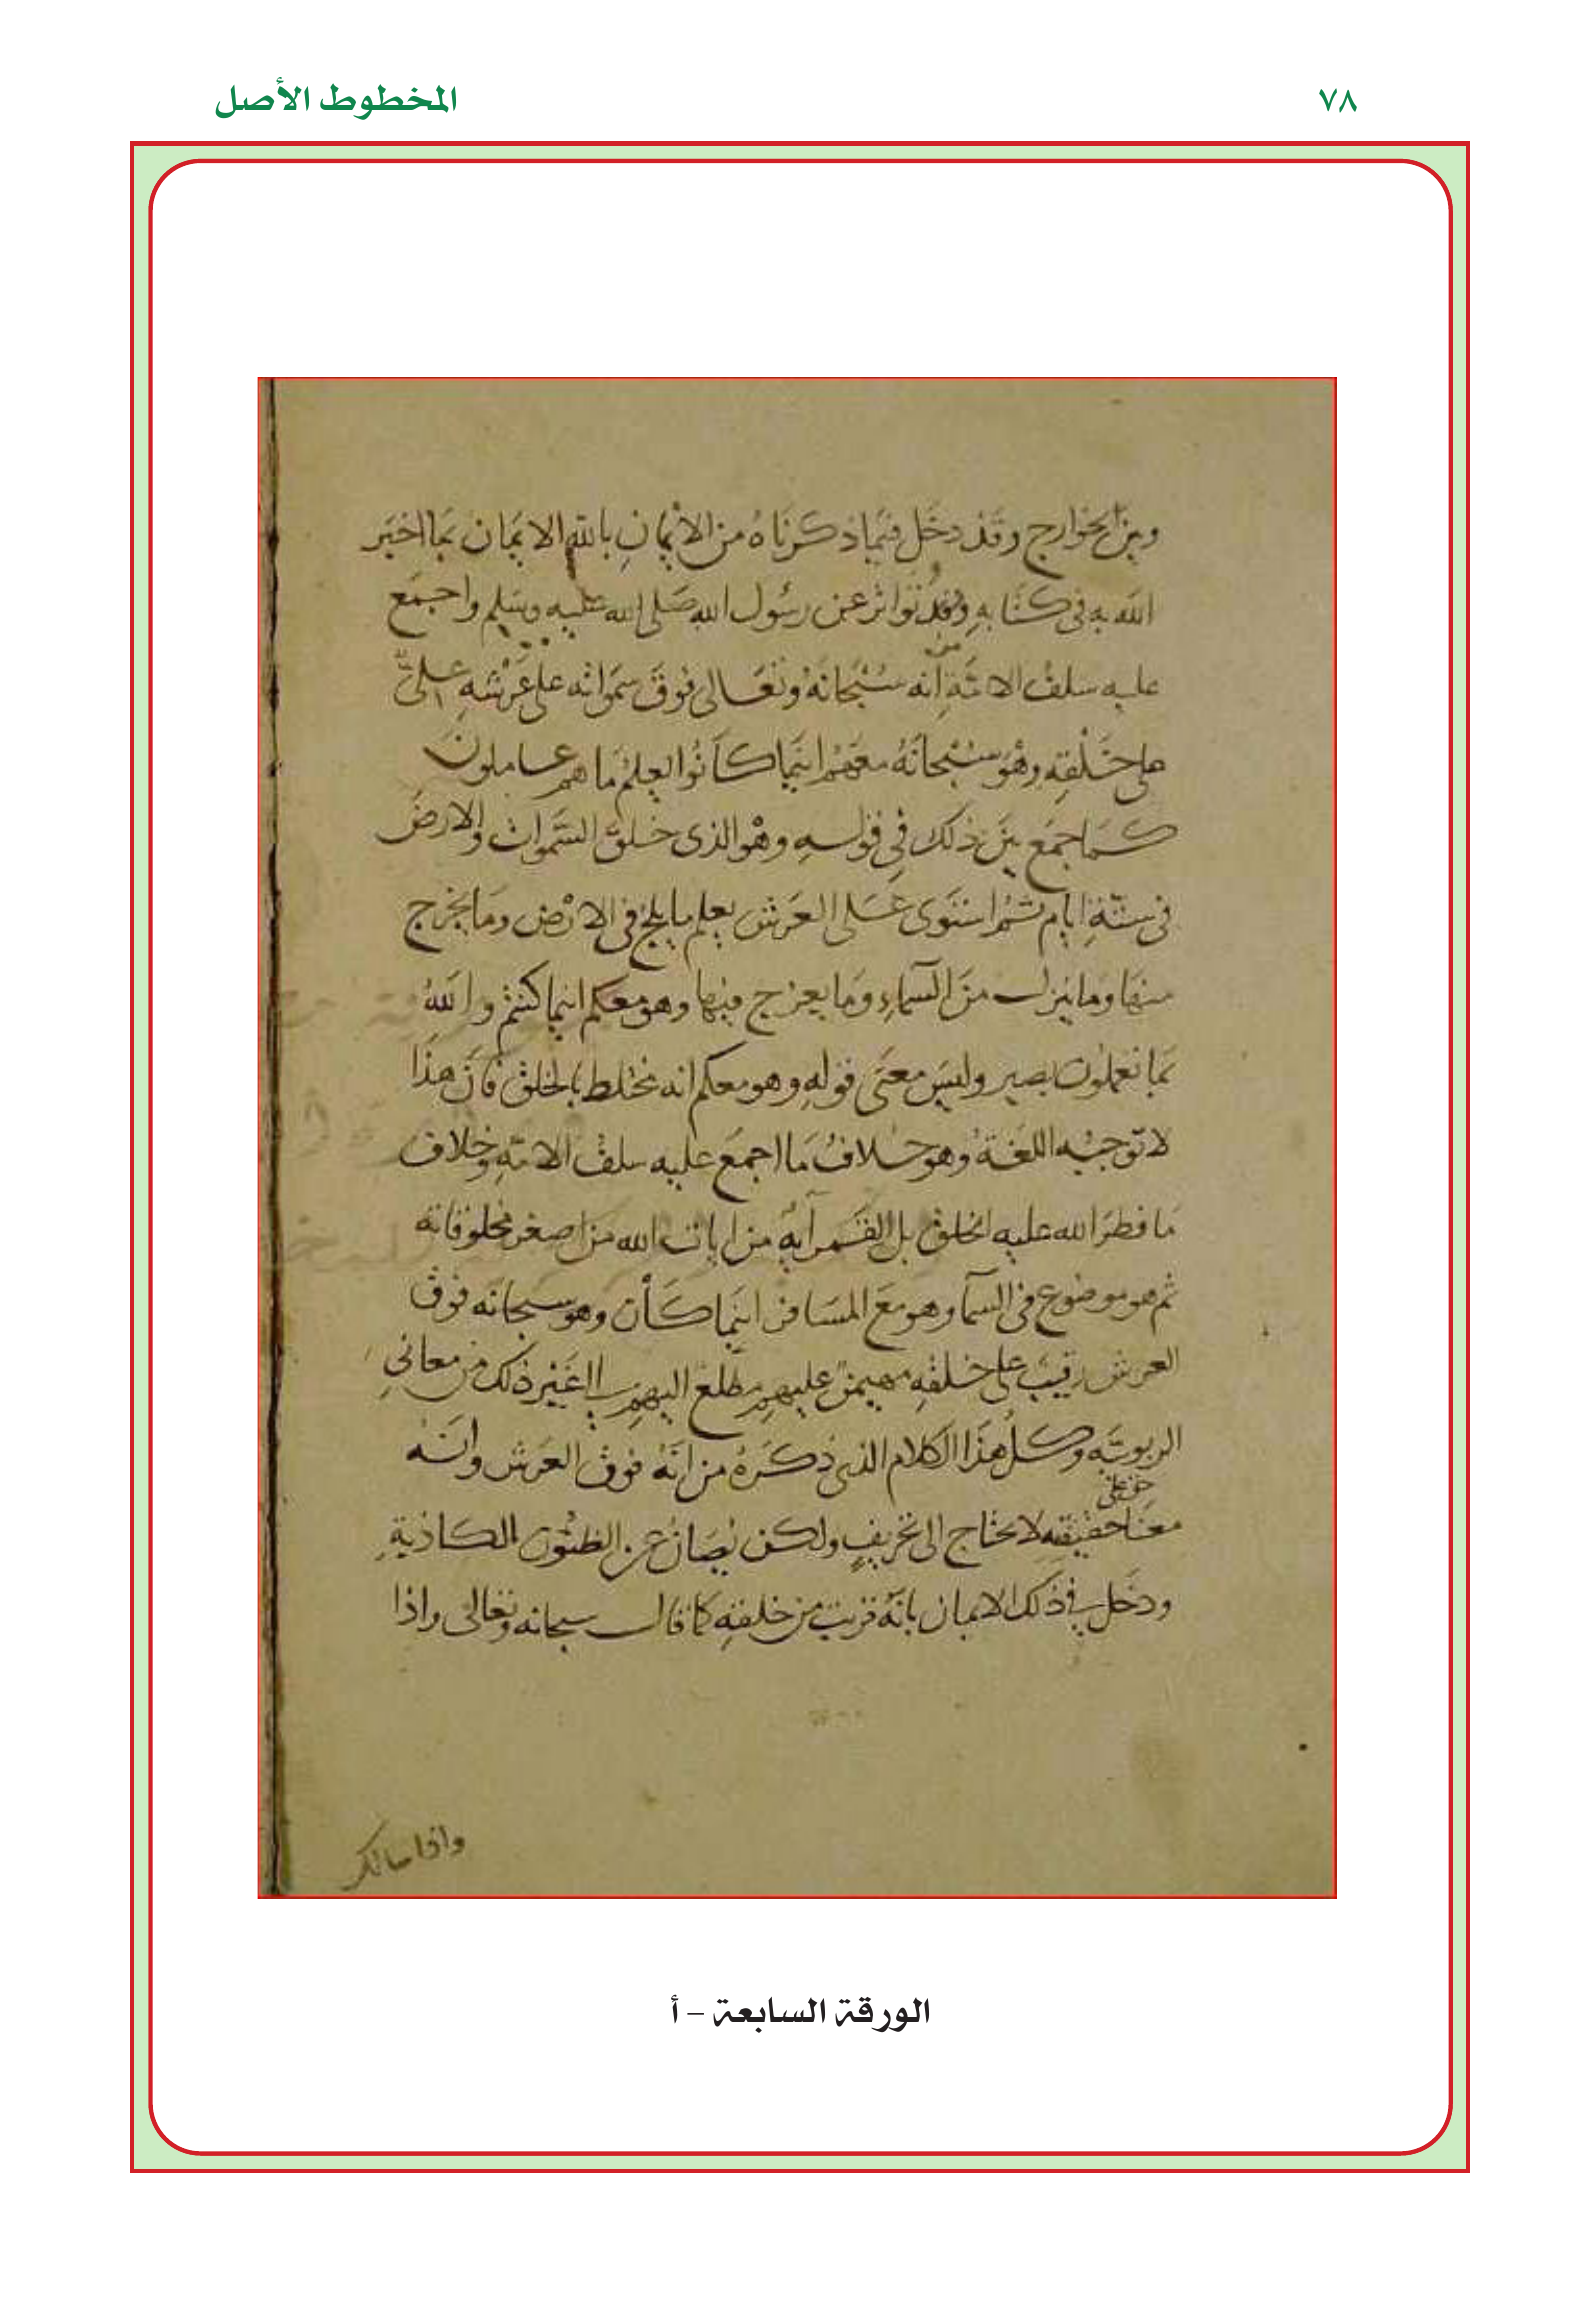 ٧٨
المخطوط الأصل
وبين الخوارج وقد دخل فيما ذكرناه من الايمان بالله الايمان بما اخبر
الله به فى كتابه وتواتر عن رسول الله صلى الله عليه وسلم واجمع
عليه سلف الامة من انه سبحانه وتعالى فوق سمواته على عرشه علىّ
على خلقه وهو سبحانه معهم اينما كانوا يعلم ما هم عاملون
كما جمع بين ذلك في قوله وهو الذى خلق السموات والارض
فى ستة ايام ثم استوى على العرش يعلم ما يلج فى الارض وما يخرج
منها وما ينزل من السماء وما يعرج فيها وهو معكم اينما كنتم والله
بما تعملون بصير وليس معنى قوله وهو معكم انه مختلط بالخلق فان هذا
لا توجبه اللغة وهو خلاف ما اجمع عليه سلف الامة وخلاف
ما فطر الله عليه الخلق بل القمر آية من ايات الله من اصغر مخلوقاته
ثم هو موضوع فى السمآ وهو مع المسافر اينما كان وهو سبحانه فوق
العرش رقيب على خلقه مهيمن عليهم مطلع اليهم الى غير ذلك من معاني
الربوبية وكل هذا الكلام الذى ذكره من انه فوق العرش وانه
حق على
معنا حقيقته لا يحتاج الى تحريف ولكن يصان عن الظنون الكاذبة
ودخل في ذلك الايمان بانه قريب من خلقه كما قال سبحانه وتعالى واذا
واذا سالك
الورقة السابعة – أ